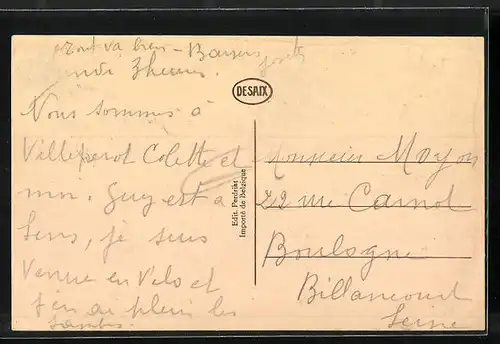 Tout va bien - Baisers
3 heures.
DESAIX
Nous sommes à
Colette et
moi. Guy est à
Sens, je suis
venue en vélo et
j'en ai plein les
jambes.
Edit. Perdrikt
Importé de Belgique
Monsieur Moyon
22 rue Carnot
Boulogne
Billancourt
Seine